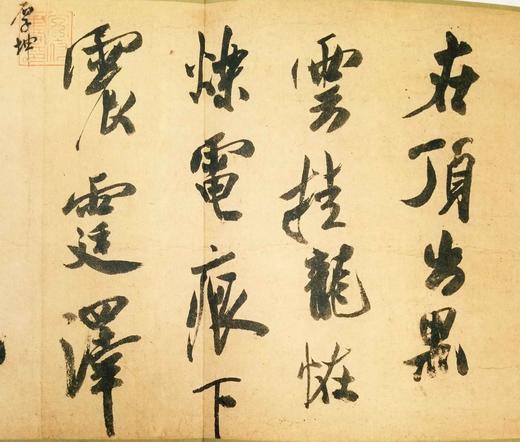 在頂出黑
雲挂龍怪
爍電痕下
震霆澤
厚坤